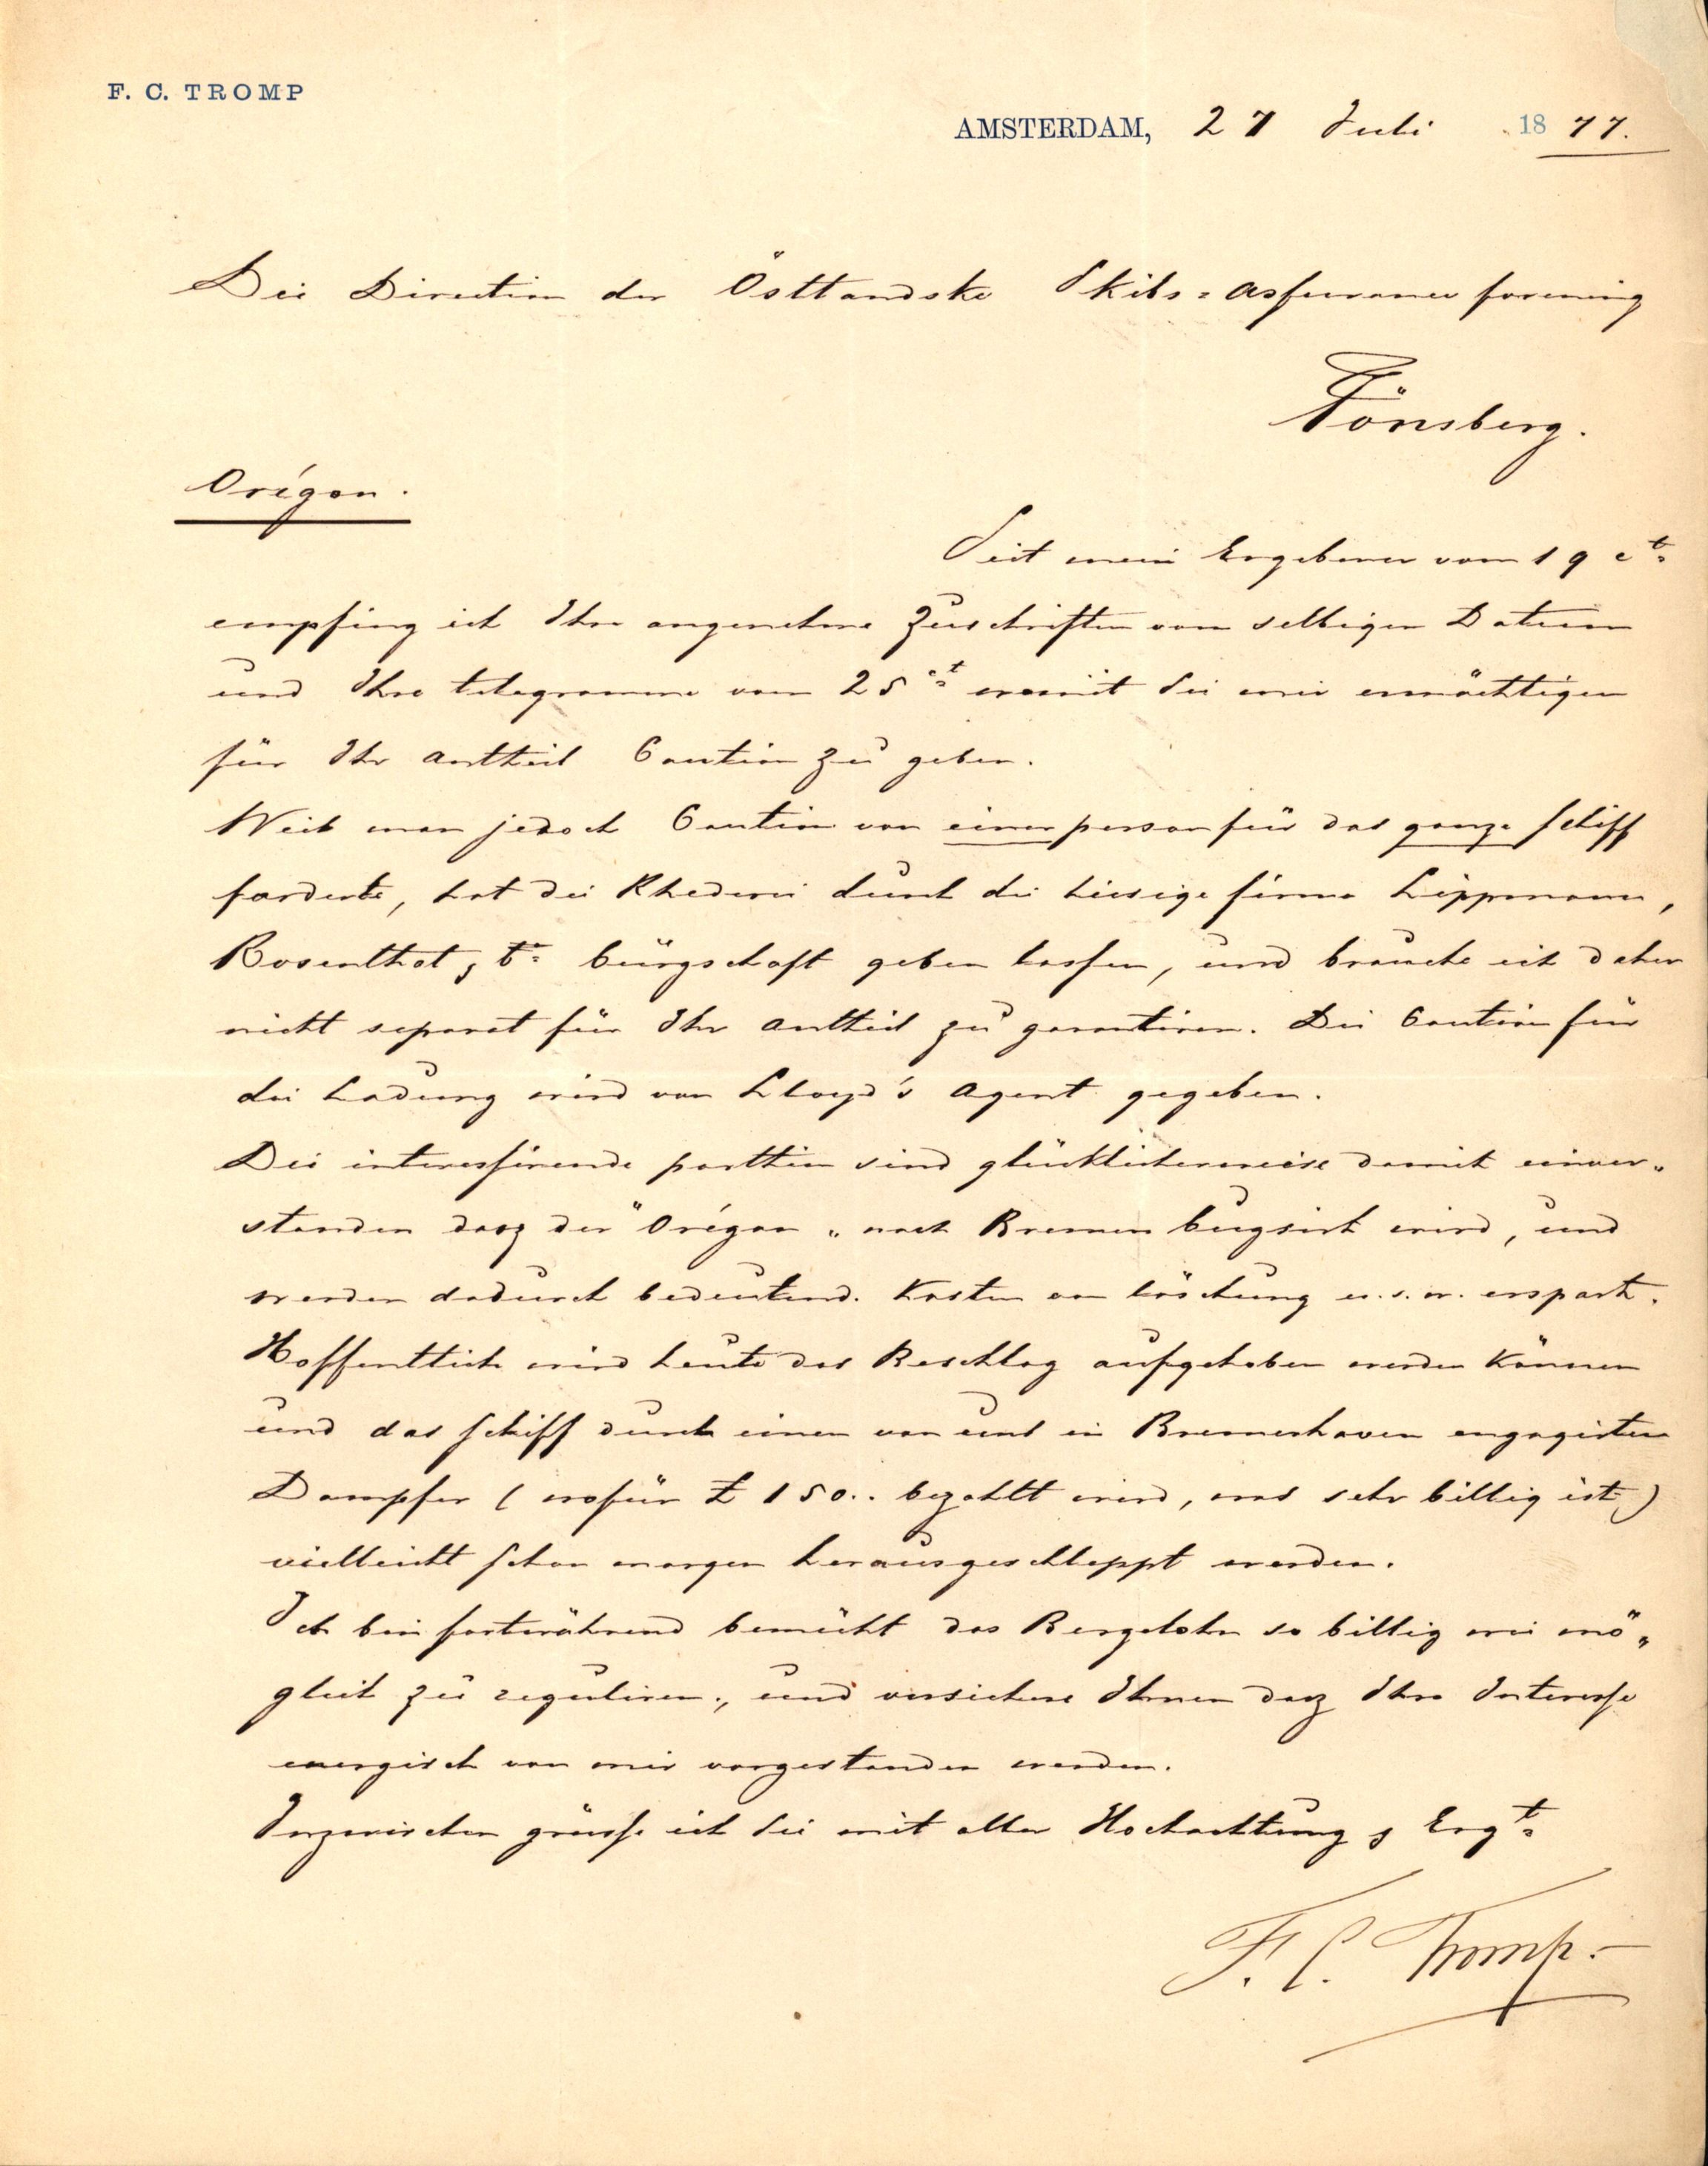 F. C. TROMP
AMSTERDAM, 27 Juli 1877.
Die Direction der Östlandske Skibs=Assurance forening
Tönsberg.
Orégon.
Seit mein Ergebenes vom 19 ct
empfing ich Ihre angenehme Zuschriften vom selbigen Datum
und Ihre telegramme vom 25 ct womit Sie mir ermächtigen
für Ihr Antheil Caution zu geben.
Weil man jedoch Caution von einer person für das ganze Schiff
forderte, hat die Rhederei durch die hiesige firma Lippmann,
Rosenthal & Co bürgschaft geben lassen, und brauche ich daher
nicht separat für Ihr Antheil zu garantiren. Die Caution für
die Ladung wird von Lloyd's Agent gegeben.
Die interessirende parthien sind glücklicherweise damit einver„
standen dasz der "Orégon„ nach Bremen bugsirt wird, und
werden dadurch bedeutend. Kosten von löschung u.s.w. erspart.
Hoffentlich wird heute das Beschlag aufgehoben werden können
und das Schiff durch einen von uns in Bremerhaven engagirten
Dampfer (wofür £ 150.. bezahlt wird, was sehr billig ist)
vielleicht schon morgen herausgeschleppt werden.
Ich bin fortwährend bemüht das Bergelohn so billig wie mö„
glich zu reguliren., und versichere Ihnen dasz Ihre Interesse
energisch von mir vorgestanden werden.
Inzwischen grüsse ich Sie mit aller Hochachtung & Ergt
F. C. Tromp.